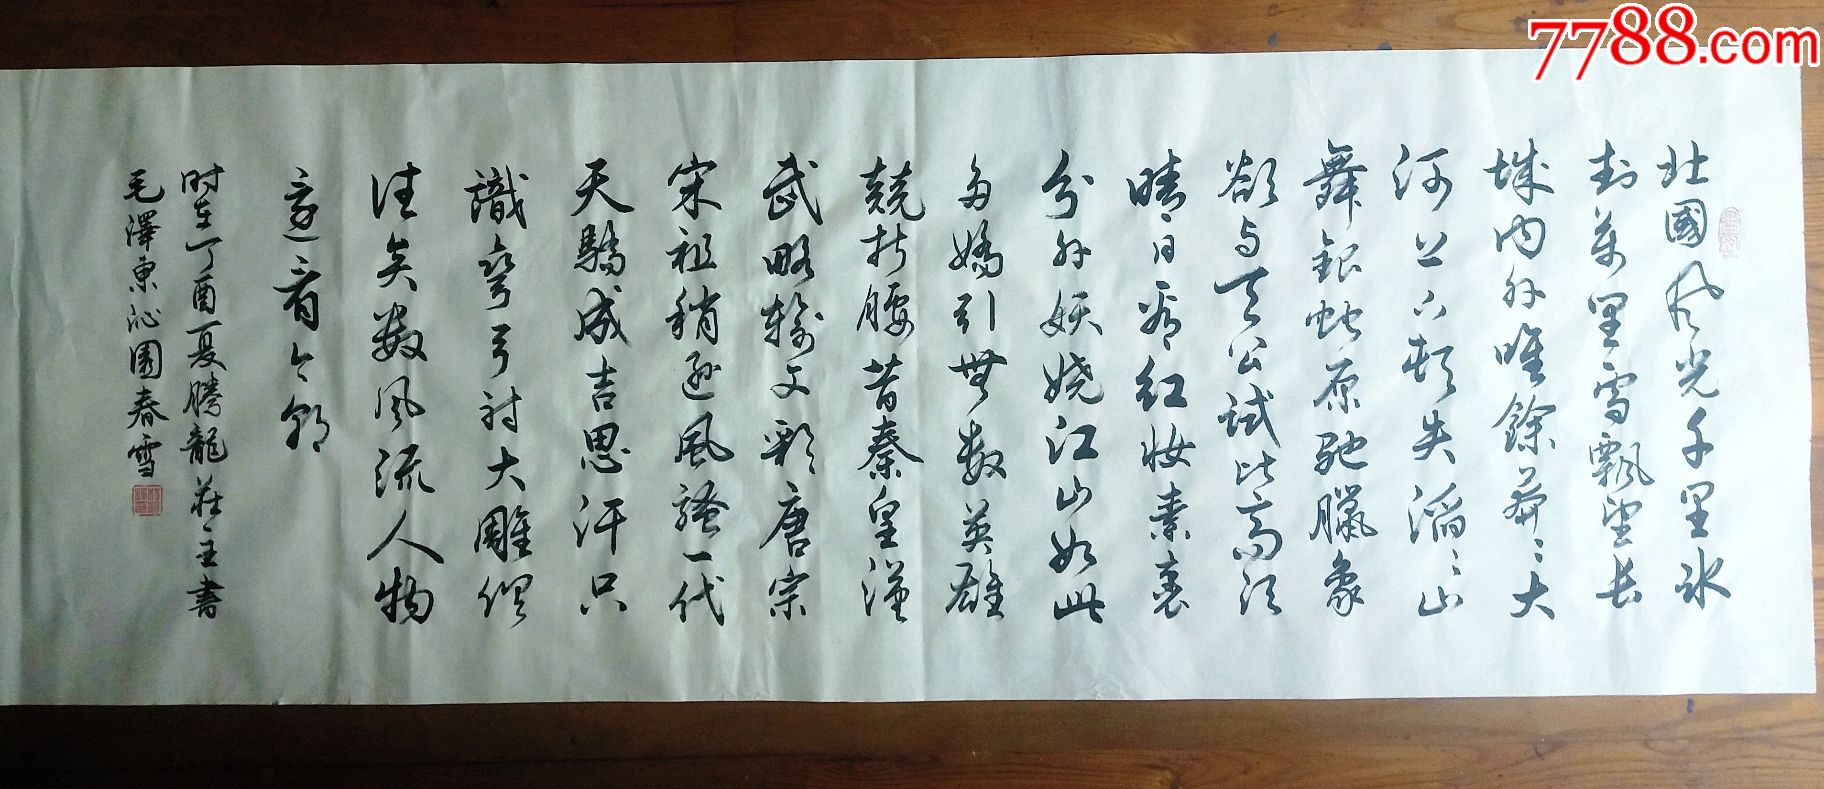 北國风光千里冰
封萬里雪飄望长
城内外唯餘莽〻大
河上下顿失滔〻山
舞銀蛇原驰臘象
欲与天公試比高须
晴日看红妝素裹
分外妖娆江山如此
多嬌引無数英雄
競折腰昔秦皇漢
武略输文彩唐宗
宋祖稍逊風骚一代
天驕成吉思汗只
識彎弓射大雕俱
往矣数風流人物
还看今朝
时在丁酉夏腾龍莊主書
毛澤東沁園春雪
7788.com